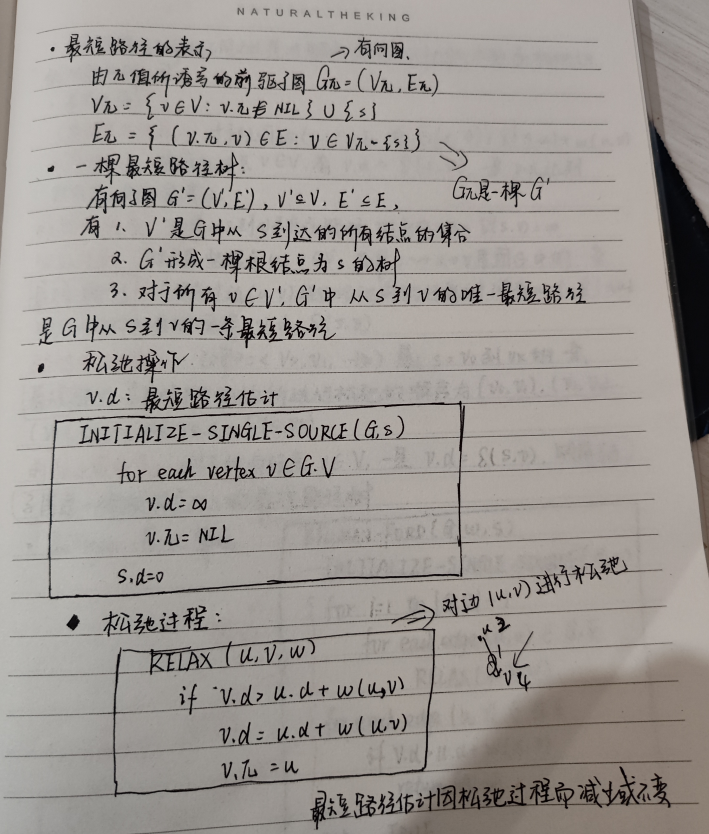 NATURALTHEKING
· 最短路径的表示 → 有向图.
由π值所诱导的前驱子图 Gπ = (Vπ, Eπ)
Vπ = { v ∈ V: v.π ≠ NIL } ∪ {s}
Eπ = { (v.π, v) ∈ E: v ∈ Vπ - {s} }
· 一棵最短路径树:
Gπ是一棵 G'
有向子图 G' = (V', E'), V' ⊆ V, E' ⊆ E,
有 1. V' 是G中从 S到达的所有结点的集合
2. G' 形成一棵根结点为 s 的树
3. 对于所有 v ∈ V', G' 中 从 S 到 v 的唯一最短路径
是 G 中从 S 到 v 的一条最短路径
· 松弛操作
v.d: 最短路径估计
INITIALIZE-SINGLE-SOURCE(G,s)
for each vertex v ∈ G.V
v.d = ∞
v.π = NIL
s.d=0
◆ 松弛过程: ⇒ 对边 (u,v) 进行松弛
RELAX (u, v, w)
if v.d > u.d + w(u,v)
v.d = u.d + w(u,v)
v.π = u
u 2
v 4
最短路径估计因松弛过程而减少或不变